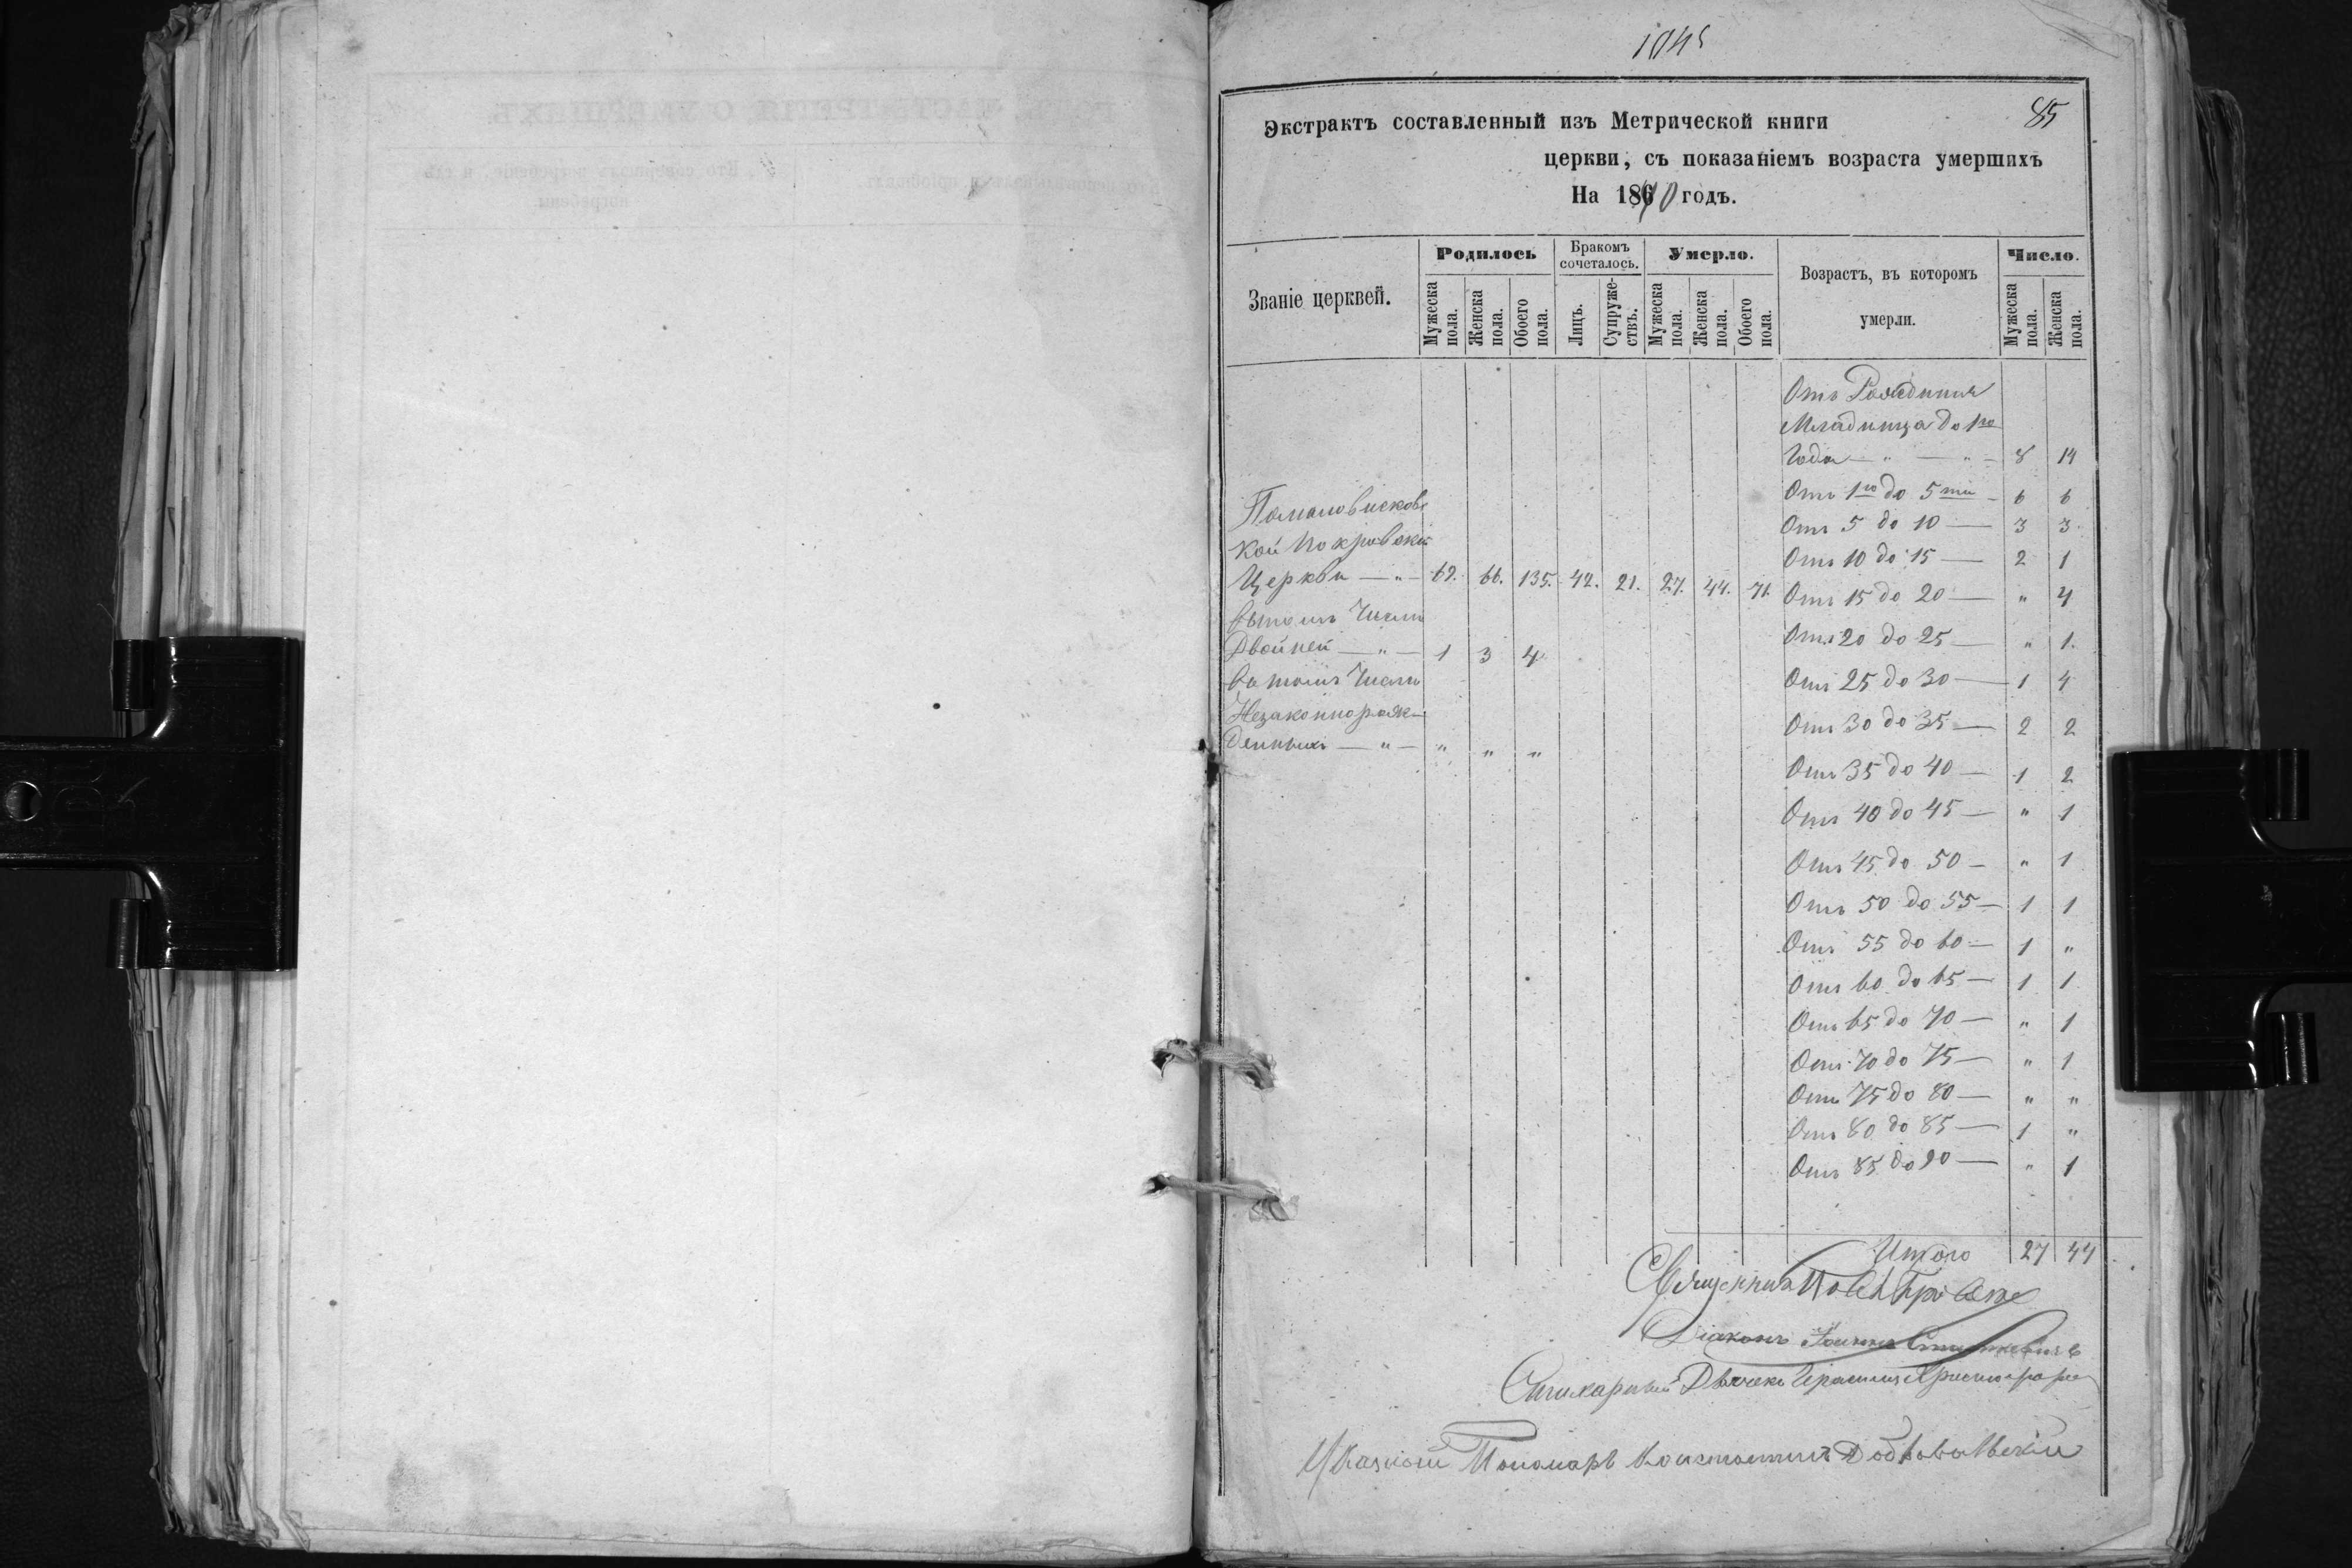 85
Экстрактъ составленный изъ Метрической книги
церкви, съ показаніемъ возраста умершихъ
На 1870 годъ.
Званіе церквей.
Родилось
Бракомъ сочеталось.
Умерло.
Возрастъ, въ которомъ умерли.
Число.
Мужеска пола.
Женска пола.
Обоего пола.
Лицъ.
Супружествъ.
Мужеска пола.
Женска пола.
Обоего пола.
Мужеска пола.
Женска пола.
кой Покровской
Церкви — " — 69. 66. 135. 42. 21. 27. 44. 71.
Числѣ
Двойней — " — 1 3 4
Въ томъ Числѣ
Незаконнорож-
денныхъ — " — " " "
Отъ Рожденія
Младенца до 1го
Года — " — " — 8 14
Отъ 1го до 5ти — 6 6
Отъ 5 до 10 — 3 3
Отъ 10 до 15 — 2 1
Отъ 15 до 20 — " 4
Отъ 20 до 25 — " 1.
Отъ 25 до 30 — 1 4
Отъ 30 до 35 — 2 2
Отъ 35 до 40 — 1 2
Отъ 40 до 45 — " 1
Отъ 45 до 50 — " 1
Отъ 50 до 55 — 1 1
Отъ 55 до 60 — 1 "
Отъ 60 до 65 — 1 1
Отъ 65 до 70 — " 1
Отъ 70 до 75 — " 1
Отъ 75 до 80 — " "
Отъ 80 до 85 — 1 "
Отъ 85 до 90 — " 1
Итого 27 44
Священникъ
Діаконъ
Стихарный Дьячекъ
Указной Пономарь Константинъ